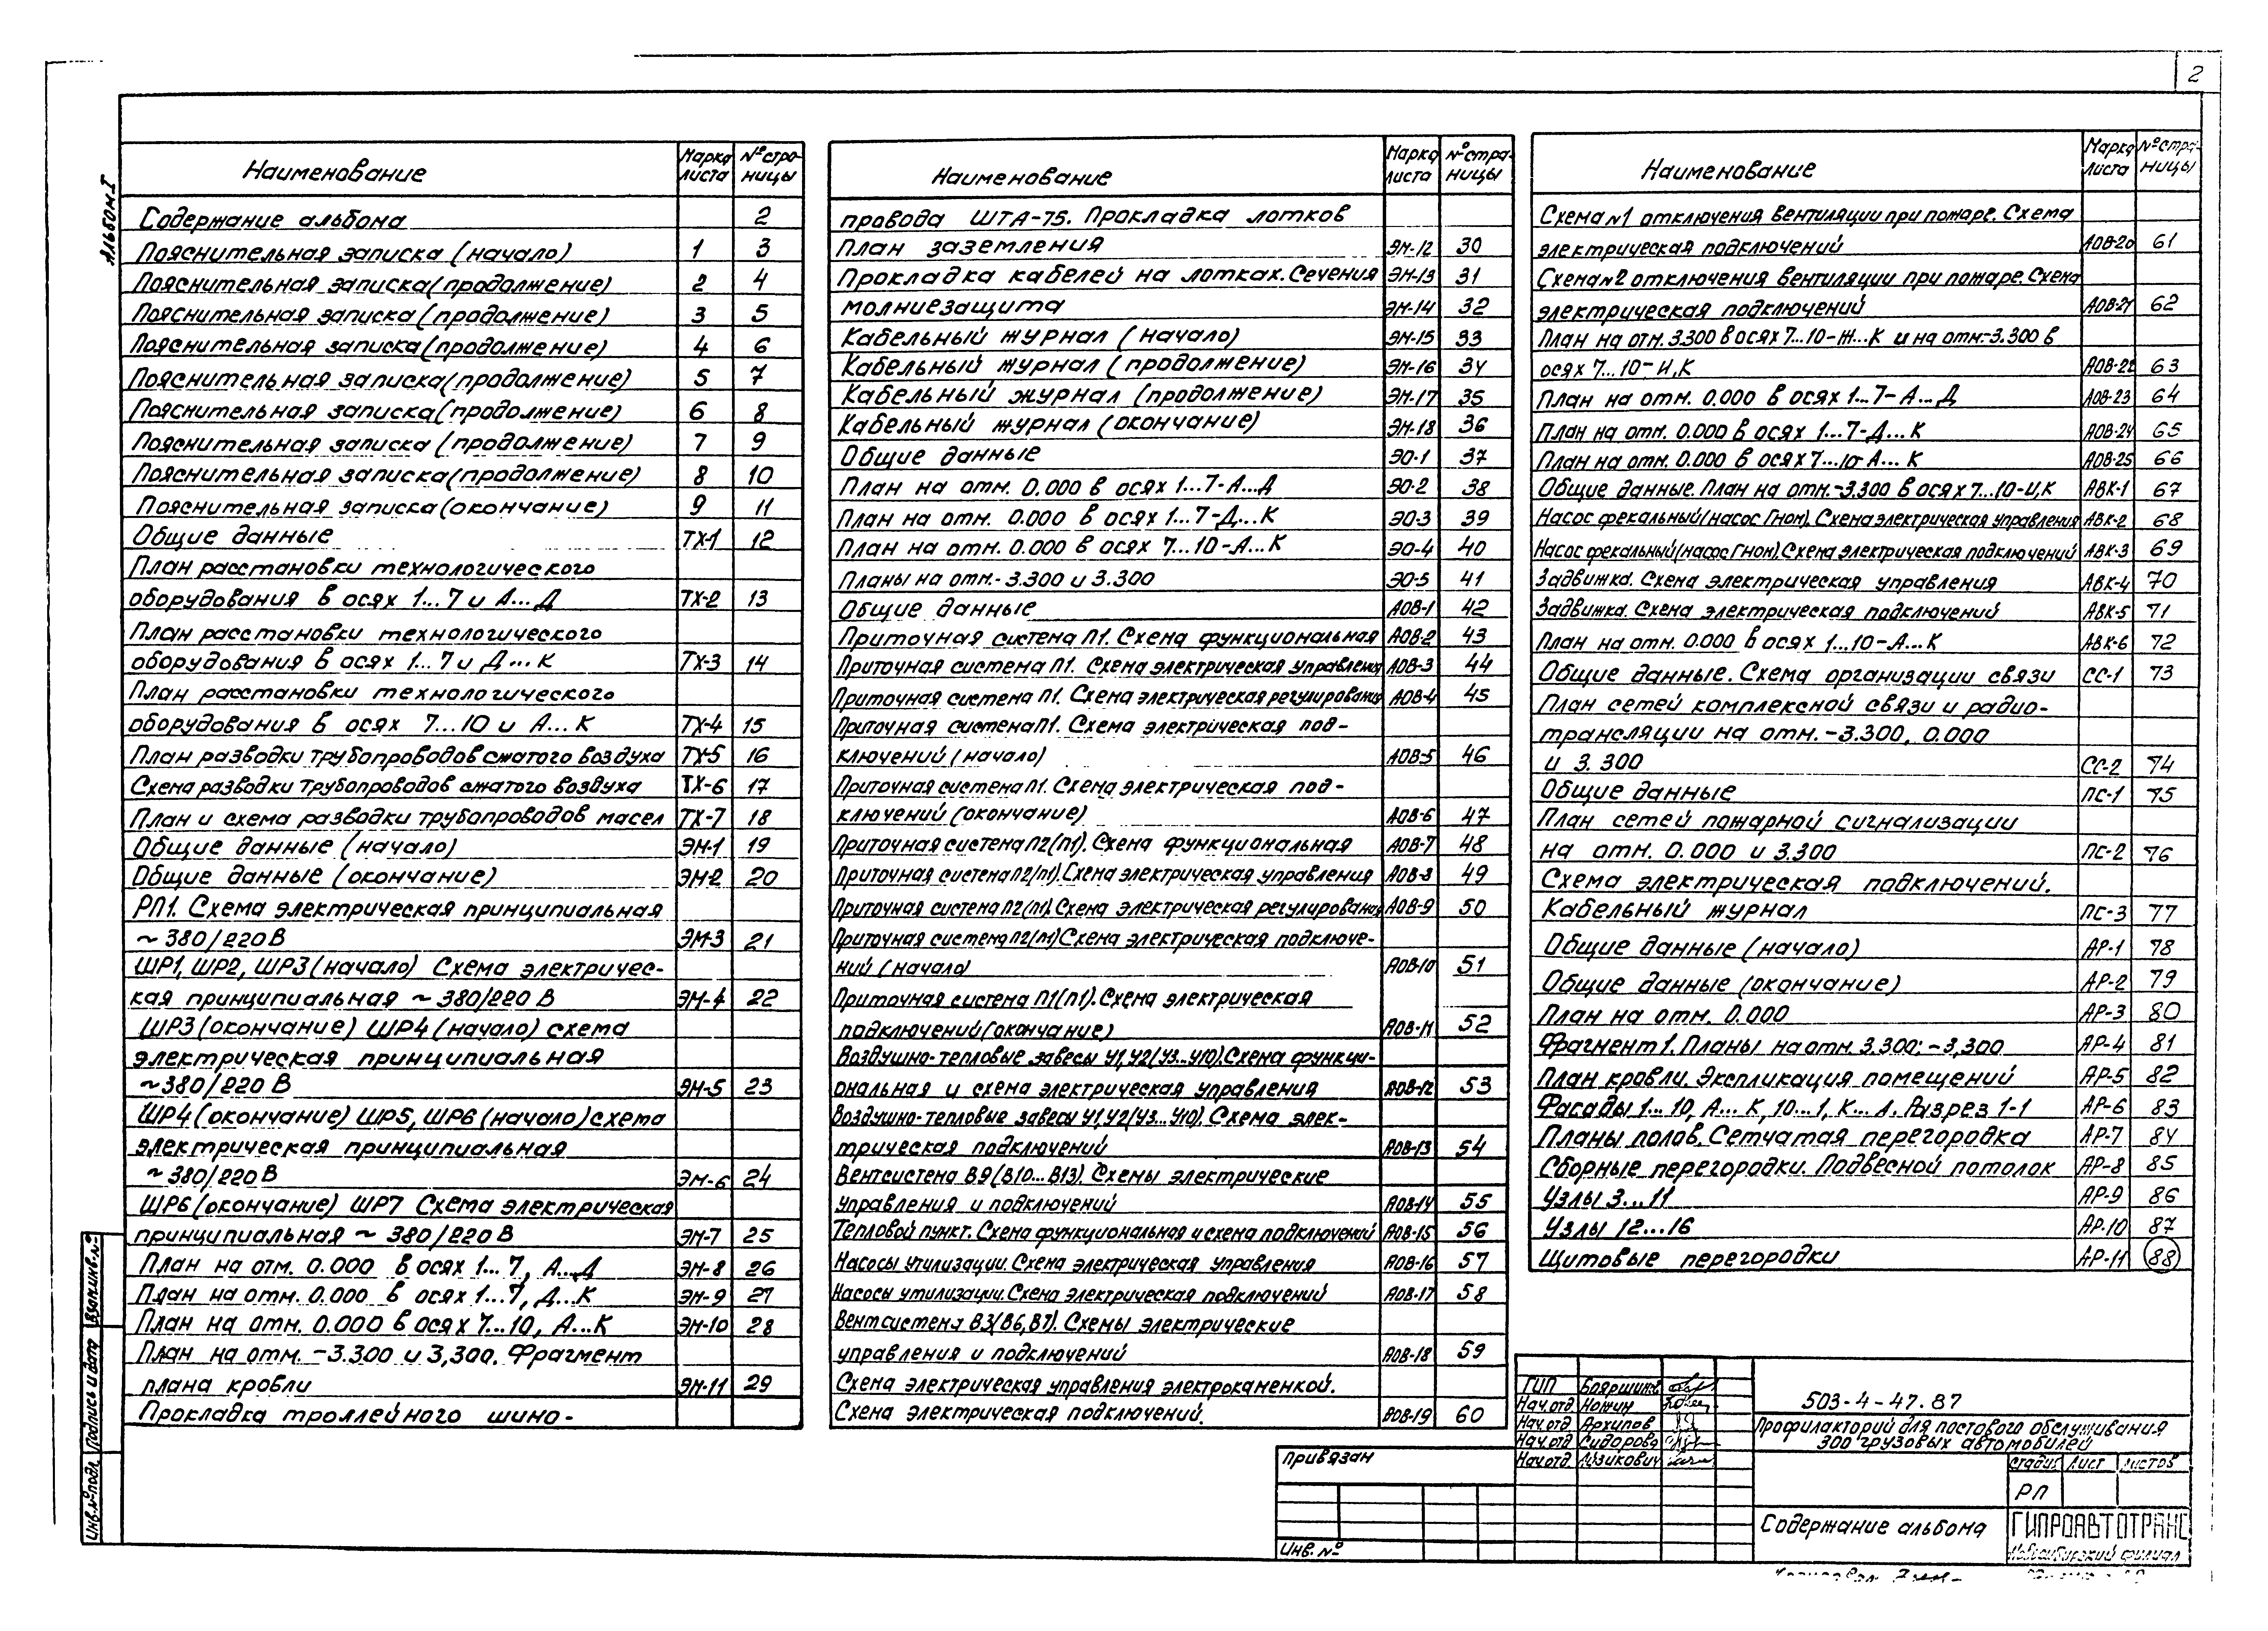 2
Альбом I
Наименование Марка листа № стра-ницы
Содержание альбома 2
Пояснительная записка (начало) 1 3
Пояснительная записка (продолжение) 2 4
Пояснительная записка (продолжение) 3 5
Пояснительная записка (продолжение) 4 6
Пояснительная записка (продолжение) 5 7
Пояснительная записка (продолжение) 6 8
Пояснительная записка (продолжение) 7 9
Пояснительная записка (продолжение) 8 10
Пояснительная записка (окончание) 9 11
Общие данные ТХ-1 12
План расстановки технологического
оборудования в осях 1...7 и А...Д ТХ-2 13
План расстановки технологического
оборудования в осях 1...7 и Д...К ТХ-3 14
План расстановки технологического
оборудования в осях 7...10 и А...К ТХ-4 15
План разводки трубопроводов сжатого воздуха ТХ-5 16
Схема разводки трубопроводов сжатого воздуха ТХ-6 17
План и схема разводки трубопроводов масел ТХ-7 18
Общие данные (начало) ЭМ-1 19
Общие данные (окончание) ЭМ-2 20
РП1. Схема электрическая принципиальная
~380/220В ЭМ-3 21
ШР1, ШР2, ШР3 (начало) Схема электричес-
кая принципиальная ~380/220 В ЭМ-4 22
ШР3 (окончание) ШР4 (начало) схема
электрическая принципиальная
~380/220 В ЭМ-5 23
ШР4 (окончание) ШР5, ШР6 (начало) схема
электрическая принципиальная
~380/220В ЭМ-6 24
ШР6 (окончание) ШР7 Схема электрическая
принципиальная ~380/220 В ЭМ-7 25
План на отм. 0.000 в осях 1...7, А...Д ЭМ-8 26
План на отм. 0.000 в осях 1...7, Д...К ЭМ-9 27
План на отм. 0.000 в осях 7...10, А...К ЭМ-10 28
План на отм. -3.300 и 3,300. Фрагмент
плана кровли ЭМ-11 29
Прокладка троллейного шино-
Наименование Марка листа № стра-ницы
провода ШТА-75. Прокладка лотков
План заземления ЭМ-12 30
Прокладка кабелей на лотках. Сечения ЭМ-13 31
молниезащита ЭМ-14 32
Кабельный журнал (начало) ЭМ-15 33
Кабельный журнал (продолжение) ЭМ-16 34
Кабельный журнал (продолжение) ЭМ-17 35
Кабельный журнал (окончание) ЭМ-18 36
Общие данные ЭО-1 37
План на отм. 0.000 в осях 1...7-А...Д ЭО-2 38
План на отм. 0.000 в осях 1...7-Д...К ЭО-3 39
План на отм. 0.000 в осях 7...10-А...К ЭО-4 40
Планы на отм. -3.300 и 3.300 ЭО-5 41
Общие данные АОВ-1 42
Приточная система П1. Схема функциональная АОВ-2 43
Приточная система П1. Схема электрическая управления АОВ-3 44
Приточная система П1. Схема электрическая регулирования АОВ-4 45
Приточная система П1. Схема электрическая под-
ключений (начало) АОВ-5 46
Приточная система П1. Схема электрическая под-
ключений (окончание) АОВ-6 47
Приточная система П2(П1). Схема функциональная АОВ-7 48
Приточная система П2(П1). Схема электрическая управления АОВ-8 49
Приточная система П2(П1). Схема электрическая регулирования АОВ-9 50
Приточная система П2(П1) Схема электрическая подключе-
ний (начало) АОВ-10 51
Приточная система П1(П1). Схема электрическая
подключений (окончание) АОВ-11 52
Воздушно-тепловые завесы У1,У2(У3...У10). Схема функци-
ональная и схема электрическая управления АОВ-12 53
Воздушно-тепловые завесы У1,У2(У3...У10). Схема элек-
трическая подключений АОВ-13 54
Вентсистема В9(В10...В13). Схемы электрические
управления и подключений АОВ-14 55
Тепловой пункт. Схема функциональная и схема подключений АОВ-15 56
Насосы утилизации. Схема электрическая управления АОВ-16 57
Насосы утилизации. Схема электрическая подключений АОВ-17 58
Вентсистема В3(В6,В7). Схемы электрические
управления и подключений АОВ-18 59
Схема электрическая управления электрокаменкой.
Схема электрическая подключений. АОВ-19 60
Наименование Марка листа № стра-ницы
Схема №1 отключения вентиляции при пожаре. Схема
электрическая подключений АОВ-20 61
Схема №2 отключения вентиляции при пожаре. Схема
электрическая подключений АОВ-21 62
План на отм. 3.300 в осях 7...10-Ж...К и на отм.-3.300 в
осях 7...10-И,К АОВ-22 63
План на отм. 0.000 в осях 1...7-А...Д АОВ-23 64
План на отм. 0.000 в осях 1...7-Д...К АОВ-24 65
План на отм. 0.000 в осях 7...10-А...К АОВ-25 66
Общие данные. План на отм.-3.300 в осях 7...10-И,К АВК-1 67
Насос фекальный (насос Гном). Схема электрическая управления АВК-2 68
Насос фекальный (насос Гном). Схема электрическая подключений АВК-3 69
Задвижка. Схема электрическая управления АВК-4 70
Задвижка. Схема электрическая подключений АВК-5 71
План на отм. 0.000 в осях 1...10-А...К АВК-6 72
Общие данные. Схема организации связи СС-1 73
План сетей комплексной связи и радио-
трансляции на отм. -3.300, 0.000
и 3.300 СС-2 74
Общие данные ПС-1 75
План сетей пожарной сигнализации
на отм. 0.000 и 3.300 ПС-2 76
Схема электрическая подключений.
Кабельный журнал ПС-3 77
Общие данные (начало) АР-1 78
Общие данные (окончание) АР-2 79
План на отм. 0.000 АР-3 80
Фрагмент 1. Планы на отм. 3.300; -3,300 АР-4 81
План кровли. Экспликация помещений АР-5 82
Фасады 1...10, А...К, 10...1, К...А. Разрез 1-1 АР-6 83
Планы полов. Сетчатая перегородка АР-7 84
Сборные перегородки. Подвесной потолок АР-8 85
Узлы 3...11 АР-9 86
Узлы 12...16 АР-10 87
Щитовые перегородки АР-11 88
Взам.инв.№
Подпись и дата
Инв.№подл.
Привязан
Инв. №
ГИП Бояршинов
Нач.отд. Ножин
Нач.отд. Архипов
Нач.отд. Сидорова
Нач.отд.
503-4-47.87
Профилакторий для постового обслуживания
300 грузовых автомобилей
Стадия Лист Листов
РП
Содержание альбома
ГИПРОАВТОТРАНС
Новосибирский филиал